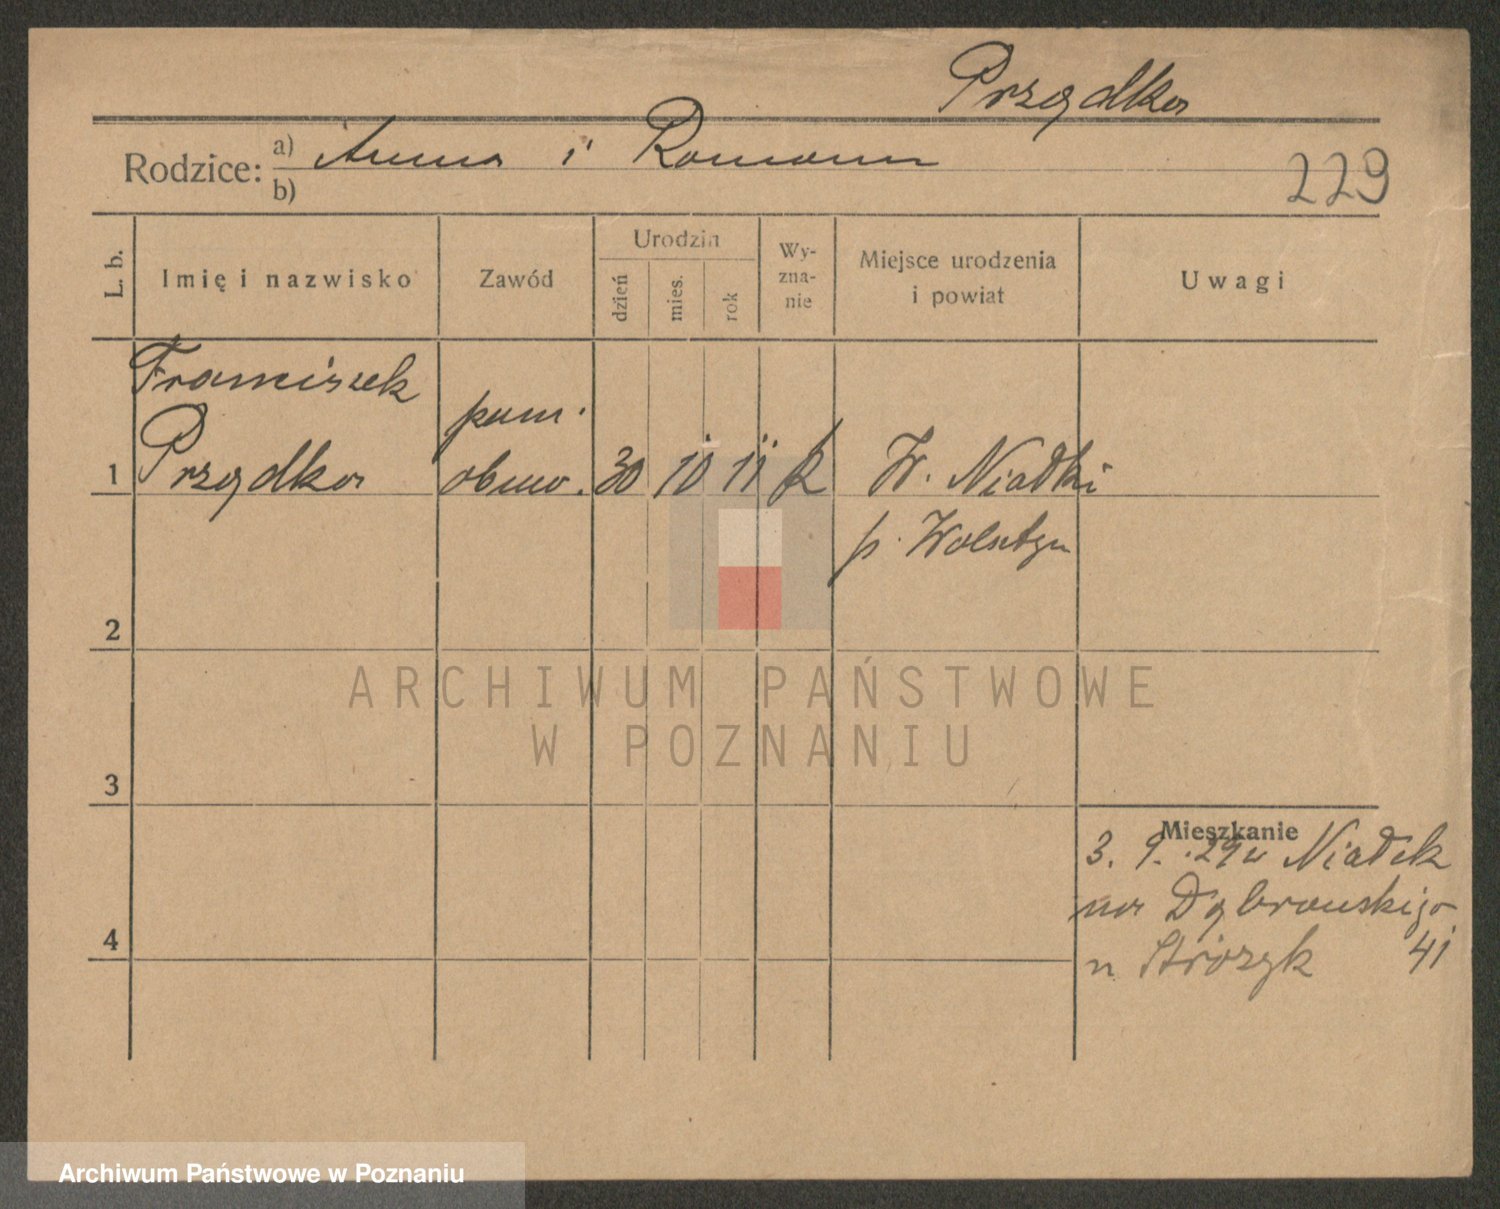 Prządka
Rodzice: a) Anna i Roman
b)
229
L. b.
Imię i nazwisko
Zawód
Urodzin
dzień
mies.
rok
Wy-
zna-
nie
Miejsce urodzenia
i powiat
Uwagi
Franciszek
pom.
1 Prządka obuw. 30 10 11 k W. Niałki
p. Wolsztyn
2
3
4
Mieszkanie
3. 9. 29 z Niałek
na Dąbrowskiego
u Stróżyk 41
ARCHIWUM PAŃSTWOWE
W POZNANIU
Archiwum Państwowe w Poznaniu